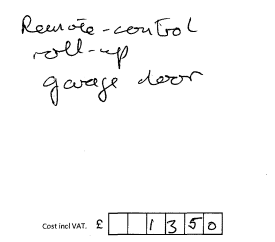 Remote-control
roll-up
garage door
Cost incl VAT. £ 1350